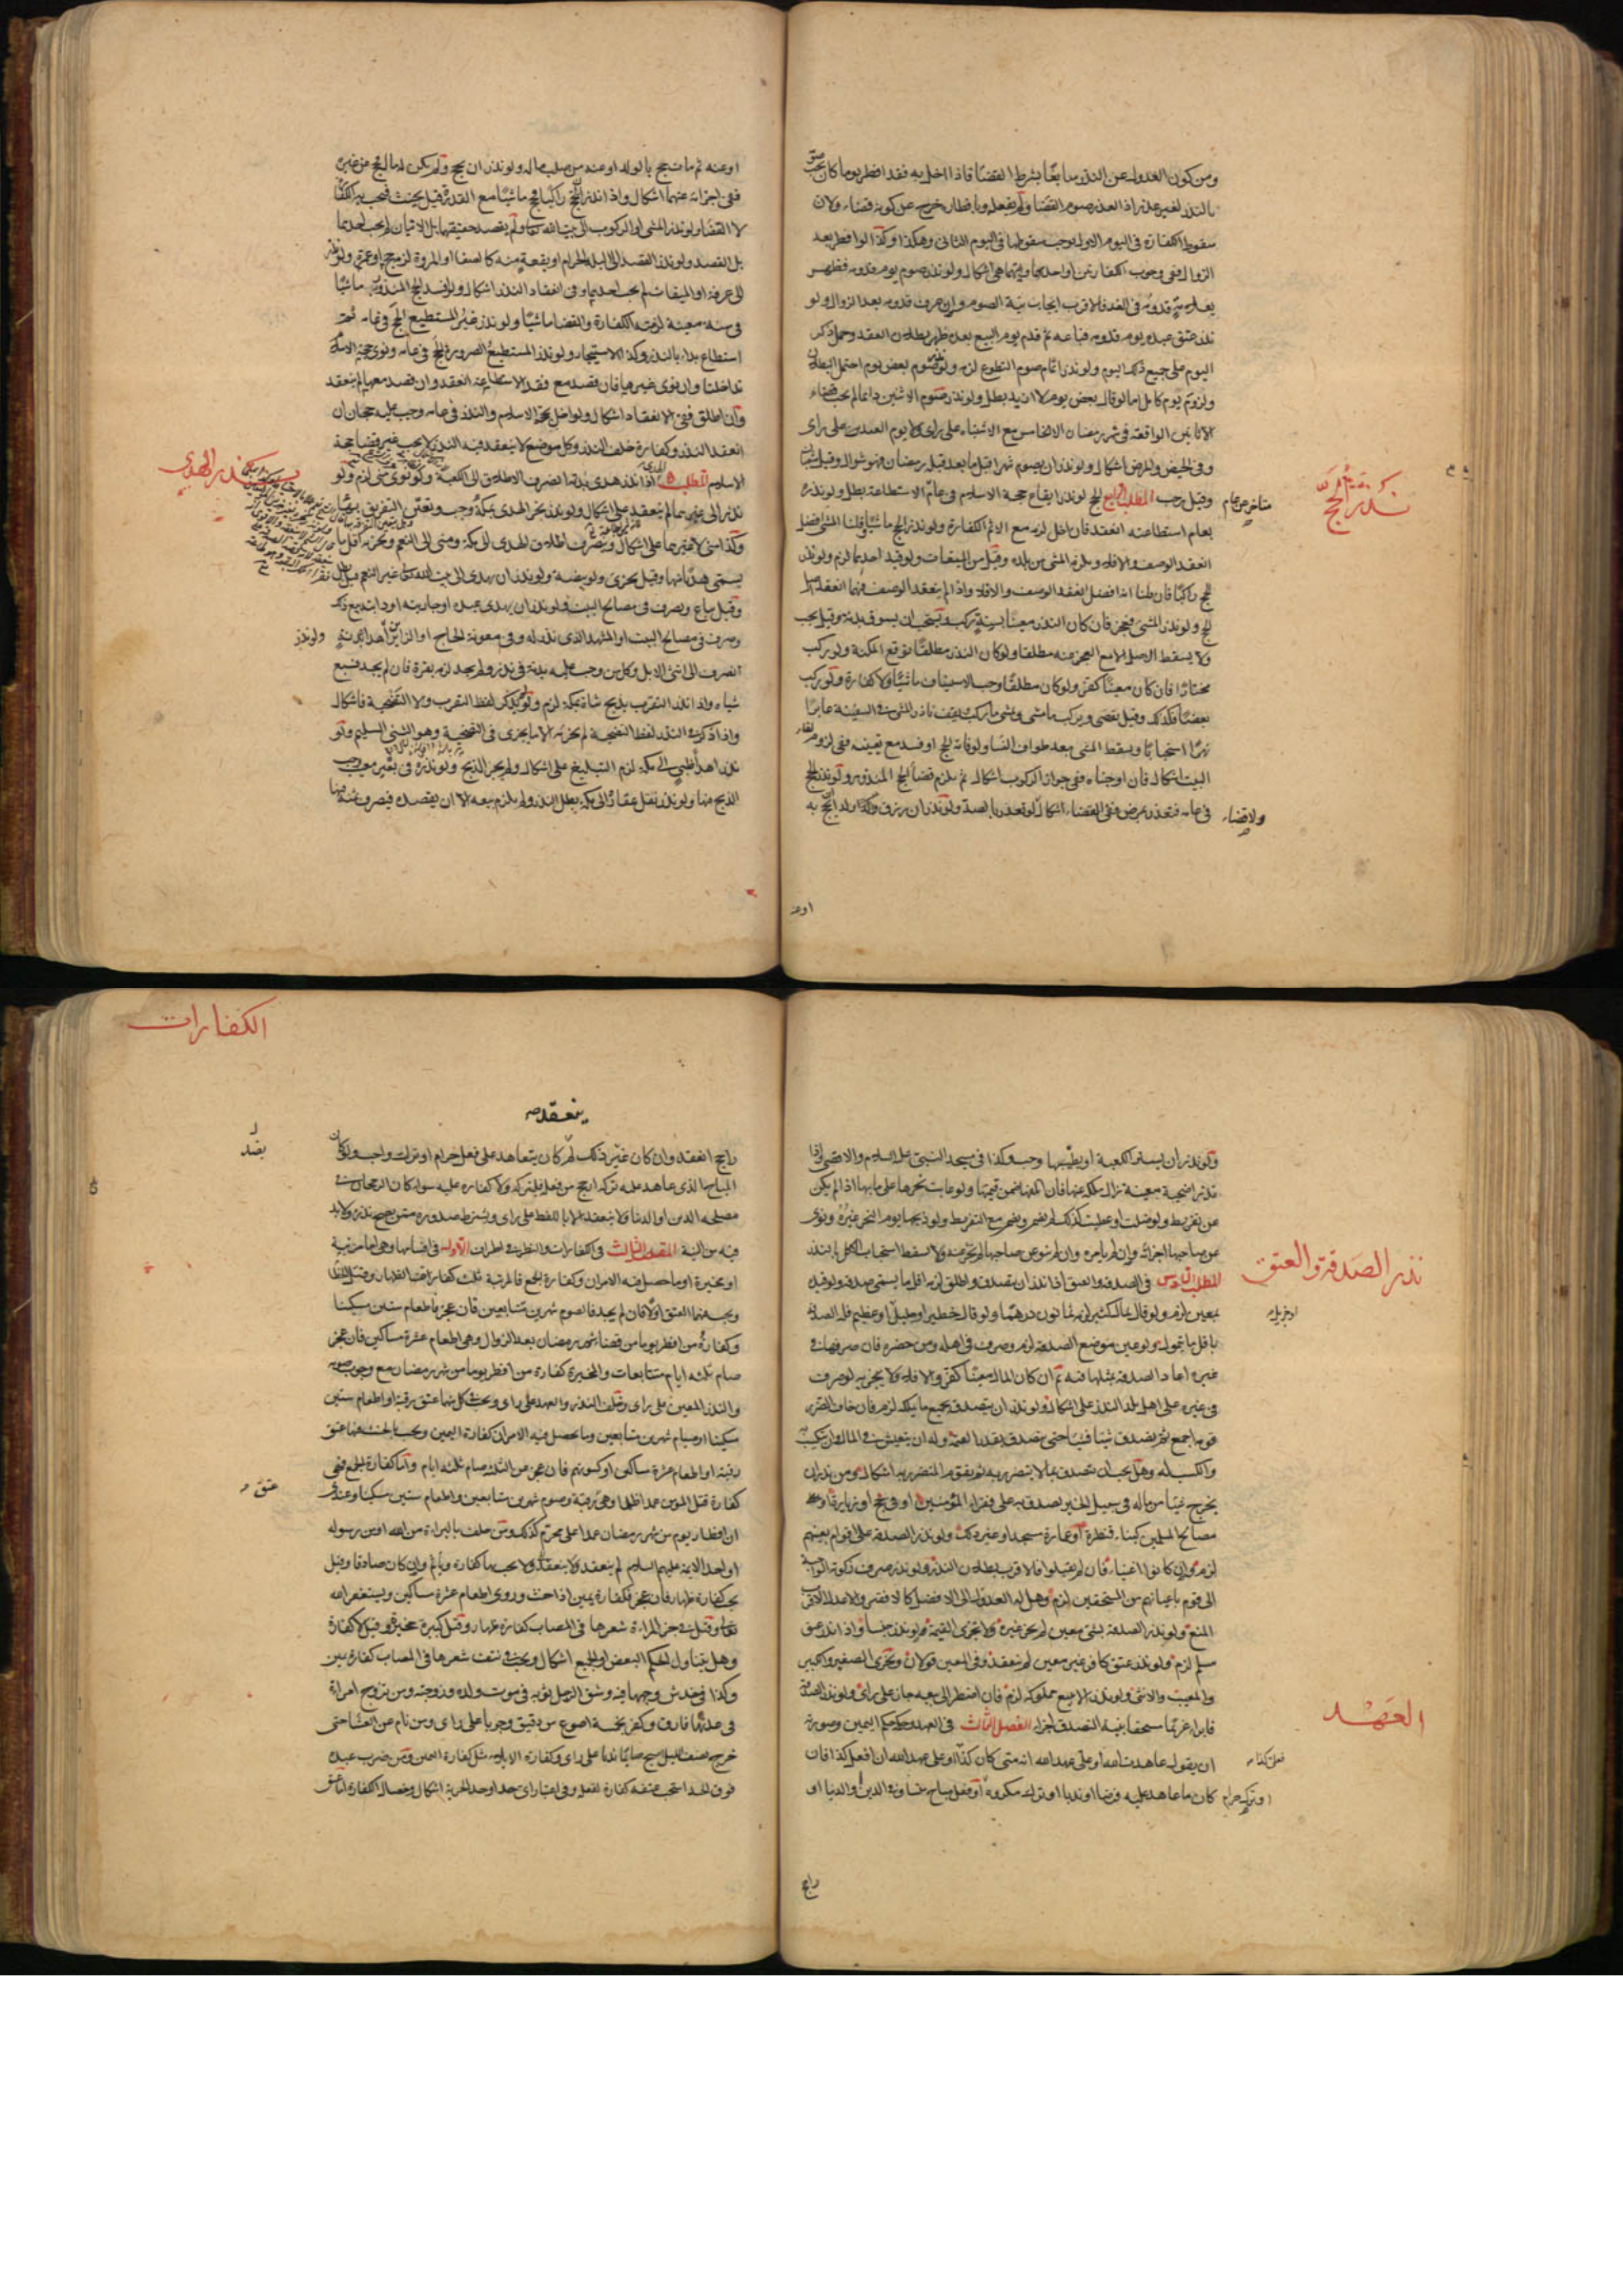 ومن كون العدول عن النذر سابغا بشرط القضا فاذا اخل به فقد افطر يوما كان
بالنذر لغير عذر اذ العذر صوم القضا ولم يفعله وبافطاره خرج عن كونه قضاء ولان
سقوط الكفارة في اليوم الاول يوجب سقوطها في اليوم الثاني وهكذا وكذا لو افطر بعد
الزوال ففي وجوب الكفارتين او احديهما وايتهما هي اشكال ولو نذر صوم يوم قدومه فظهر
بعلامة قدومه في الغد فالاقرب ايجاب نية الصوم وان عرف قدومه بعد الزوال ولو
نذر عتق عبده يوم قدومه فباعه ثم قدم يوم البيع بعده ظهر بطلان العقد وحمل ذكر
اليوم على جميع ذلك اليوم ولو نذر اتمام صوم التطوع لزم ولو نذر صوم بعض يوم احتمل البطلان
ولزوم يوم كامل اما لو قال بعض يوم لا ازيد بطل ولو نذر صوم الاثنين دائما لم يجب قضاء
الاثانين الواقعة في شهر رمضان الا الخامس مع الاشتباه على راى ولا يوم العيدين على راى
وفي الحيض والمرض اشكال ولو نذر ان يصوم شهرا قبل ما بعد قبله رمضان فهو شوال وقيل شعبان
وقيل رجب المطلب الرابع الحج لو نذر ايقاع حجة الاسلام في عام الاستطاعة بطل ولو نذره
متاخر عن عام
نذر الحج
بعام استطاعته انعقد فان اخل لزمه مع الاثم الكفارة ولو نذر الحج ماشيا وقلنا المشي افضل
انعقد الوصف والا فلا ويلزم المشي من بلده وقيل من الميقات ولو قيد احدهما لزم ولو نذر
الحج راكبا فان قلنا انه افضل انعقد الوصف والا فلا واذا لم ينعقد الوصف فيهما انعقد اصل
الحج ولو نذر المشي فعجز فان كان النذر معينا بسنة ركب ويستحب ان يسوق بدنة وقيل يجب
ولا يسقط الاصل الا مع العجز عنه مطلقا ولو كان النذر مطلقا توقع المكنة ولو ركب
مختارا فان كان معينا كفر ولو كان مطلقا وجب الاستيناف ماشيا ولا كفارة ولو ركب
بعضا فكذلك وقيل يقضي ويركب ما مشى ويمشي ما ركب ويقف ناذر المشي في السفينة عابرا
نهرا استحبابا ويسقط المشي بعد طواف النسا ولو فاته الحج او فسد مع تعينه ففي لزوم لقاء
البيت اشكال فان اوجبناه ففي جواز الركوب اشكال ثم يلزم قضا الحج المنذور ولو نذر الحج
في عامه فتعذر بمرض ففي القضاء اشكال لو تعذر بالصد ولو نذر ان رزق ولدا ان يحج به
ولا قضاء
او عنه
او عنه ثم مات حج بالولد او عنه من صلب ماله ولو نذر ان يحج ولم يكن له مال فحج عن غيره
ففي اجزائه عنهما اشكال واذا نذر الحج راكبا فحج ماشيا مع القدرة قيل يحنث فتجب به الكفارة
لا القضا ولو نذر المشي او الركوب الى بيت الله تعالى ولم يقصد حقيقتهما بل الاتيان لم يجب احدهما
بل القصد ولو نذر القصد الى البلد الحرام او بقعة منه كالصفا او المروة لزم حج او عمرة ولو نذر
الى عرفة او الميقات لم يجب احدهما وفي انعقاد النذر اشكال ولو افسد الحج المنذور ماشيا
في سنة معينة لزمته الكفارة والقضا ماشيا ولو نذر غير المستطيع الحج في عامه ثم
استطاع بدا بالنذر وكذا الاستيجار ولو نذر المستطيع الصرورة الحج في عامه ونوى حجة الاسلام
تداخلتا وان نوى غيرها فان قصد مع فقد الاستطاعة انعقد وان قصد معها لم ينعقد
وان اطلق ففي الانعقاد اشكال ولو اخل بحجة الاسلام والنذر في عامه وجب عليه حجتان ان
انعقد النذر وكفارة خلف النذر وكل موضع لا ينعقد فيه النذر لا يجب غير قضا حجة
الاسلام المطلب الهدى اذا نذر هدى بدنة انصرف الاطلاق الى الكعبة ولو نوى منى لزم ولو
نذر الهدى
نذر الى غيرهما لم ينعقد على اشكال ولو نذر نحر الهدى بمكة وجب وتعين التفريق بها
وكذا منى لا غيرهما على اشكال وينصرف اطلاق الهدى الى مكة ومنى الى النعم ويجزيه اقل ما
يسمى هديا منها وقيل يجزي ولو بيضة ولو نذر ان يهدي الى بيت الله تعالى غير النعم قيل بطل
وقيل يباع ويصرف في مصالح البيت ولو نذر ان يهدي عبده او جاريته او دابته بيع ذلك
وصرف في مصالح البيت او المشهد الذي نذر له وفي معونة الحاج او الزائرين له
ولو نذر
انصرف الى انثى الابل وكل من وجب عليه بدنة في نذر ولم يجد لزمه بقرة فان لم يجد فسبع
شياه واذا نذر التقرب بذبح شاة بمكة لزم ولو لم يذكر لفظ التقرب ولا التضحية فاشكال
واذا ذكر في النذر لفظ التضحية لم يجزئه الا ما يجزي في التضحية وهو الثني السليم ولو
نذر اهداء ظبي الى مكة لزم التبليغ على اشكال ولم يجز الذبح ولو نذره في بعير معيب وجب
الذبح منها ولو نذر نقل عقار الى مكة بطل النذر ولم يلزم بيعه الا ان يقصده فيصرف ثمنه فيها
ولو نذر ان يستر الكعبة او يطيبها وجب وكذا في مسجد النبي عليه السلام والاقصى واذا
نذر اضحية معينة زال ملكه عنها فان اتلفها ضمن قيمتها ولو عابت نحرها على ما بها اذا لم يكن
عن تفريط ولو ضلت او عطبت كذلك لم يضمن ويضمن مع التفريط ولو ذبحها يوم النحر غيره ونوى
عن صاحبها اجزأته وان لم يامره وان لم ينو عن صاحبها لم يجز عنه ولا يسقط استحباب الاكل بالنذر
المطلب السادس في الصدقة والعتق اذا نذر ان يتصدق واطلق لزمه اقل ما يسمى صدقة ولو قيده
نذر الصدقة والعتق
بمعين لزم ولو قال بمال كثير لزمه ثمانون درهما ولو قال خطير او جليل او عظيم فله الصدقة
او جزيل
باقل ما يتمول ولو عين موضع الصدقة لزم وصرف في اهله ومن حضره فان صرفها في
غيره اعاد الصدقة بمثلها فيه ثم ان كان المال معينا كفر والا فلا ولا يجزيه لو صرف
في غيره على اهل بلد النذر على اشكال ولو نذر ان يتصدق بجميع ما يملكه لزم فان خاف الضرر
قومه اجمع ثم يتصدق شيئا فشيئا حتى يتصدق بقدر القيمة وله ان يتعيش في المال وان يكتسب
والكسب له وهل يجب ان يتصدق بما لا يتضرر به ثم يقوم المتضرر به اشكال ومن نذر ان
يخرج شيئا من ماله في سبيل الخير تصدق به على فقراء المؤمنين او في حج او زيارة او
مصالح المسلمين كبناء قنطرة او عمارة مسجد او غير ذلك ولو نذر الصدقة على اقوام بعينهم
لزم وان كانوا اغنياء فان لم يقبلوا فالاقرب بطلان النذر ولو نذر صرف زكوته الواجبة
الى قوم باعيانهم من المستحقين لزم وهل له العدول الى الافضل كالافقر والاعدل الاقرب
المنع ولو نذر الصدقة بشيء معين لم يجز غيره ولا تجزي القيمة واذا نذر عتق
مسلم لزم ولو نذر عتق كافر غير معين لم ينعقد وفي المعين قولان ويجزي الصغير والكبير
والمعيب والانثى ولو نذر الا يبيع مملوكه لزم فان اضطر الى بيعه جاز على راى ولو نذر الصدقة
فابراء غريما مستحقا بنية التصدق اجزاء الفصل الثالث في العهد وحكمه حكم اليمين وصورته
العهد
ان يقول عاهدت الله او على عهد الله انه متى كان كذا فعلي عهد الله ان افعل كذا فان
فعلى كذا
كان ما عاهد عليه فرضا او ندبا او ترك مكروه او فعل مباح متساو في الدين والدنيا او
او ترك حرام
راجح
الكفارات
ينعقد
راجح انعقد وان كان غير ذلك كما لو كان يتعاهد على فعل حرام او ترك واجب ولو كان
المباح الذي عاهد عليه تركه ارجح من فعله فليتركه ولا كفارة عليه سواء كان الرجحان في
مصلحة الدين او الدنيا ولا ينعقد الا باللفظ على راى ويشترط صدوره ممن يصح نذره ولا بد
فيه من النية المقصد الثالث في الكفارات والنظر في اطراف الاول في اقسامها وهي اما مرتبة
او مخيرة او ما حصل فيه الامران وكفارة الجمع فالمرتبة ثلث كفارات الظهار وقتل الخطا
ويجب فيهما العتق اولا فان لم يجد فالصوم شهرين متتابعين فان عجز فاطعام ستين مسكينا
وكفارة من افطر يوما من قضاء شهر رمضان بعد الزوال وهي اطعام عشرة مساكين فان عجز
صام ثلثة ايام متتابعات والمخيرة كفارة من افطر يوما من شهر رمضان مع وجوب صومه
والنذر المعين على راى وخلف النذر والعهد على راى ويجب في كل منها عتق رقبة او اطعام ستين
مسكينا او صيام شهرين متتابعين وما يحصل فيه الامران كفارة اليمين ويجب بالحنث فيها عتق
رقبة او اطعام عشرة مساكين او كسوتهم فان عجز عن الثلثة صام ثلثة ايام واما كفارة الجمع ففي
كفارة قتل المومن عمدا ظلما وهي عتق رقبة وصوم شهرين متتابعين واطعام ستين مسكينا وعندي
عتق
ان افطار يوم من شهر رمضان عمدا على محرم كذلك ومن حلف بالبراءة من الله او من رسوله
او احد الايمة عليهم السلام لم ينعقد ولا يجب بها كفارة وياثم وان كان صادقا وقيل
يجب كفارة ظهار فان عجز فكفارة يمين اذا حنث وروى اطعام عشرة مساكين ويستغفر الله
تعالى وقيل في جز المراة شعرها في المصاب كفارة ظهار وقيل كبيرة مخيرة وقيل لا كفارة
وهل يتناول الحكم البعض او الجميع اشكال ويجب في نتف شعرها في المصاب كفارة يمين
وكذا في خدش وجهها فيه وشق الرجل ثوبه في موت ولده وزوجته ومن تزوج امراة
في عدتها فارق وكفر بخمسة اصوع من دقيق وجوبا على راى ومن نام عن العشا حتى
خرج نصف الليل اصبح صائما ندبا على راى وكفارة الايلاء مثل كفارة اليمين ومن ضرب عبده
فوق الحد استحب عتقه كفارة لفعله وفي اعتبار اي حد او حد الحرية اشكال وخصال الكفارة اما عتق